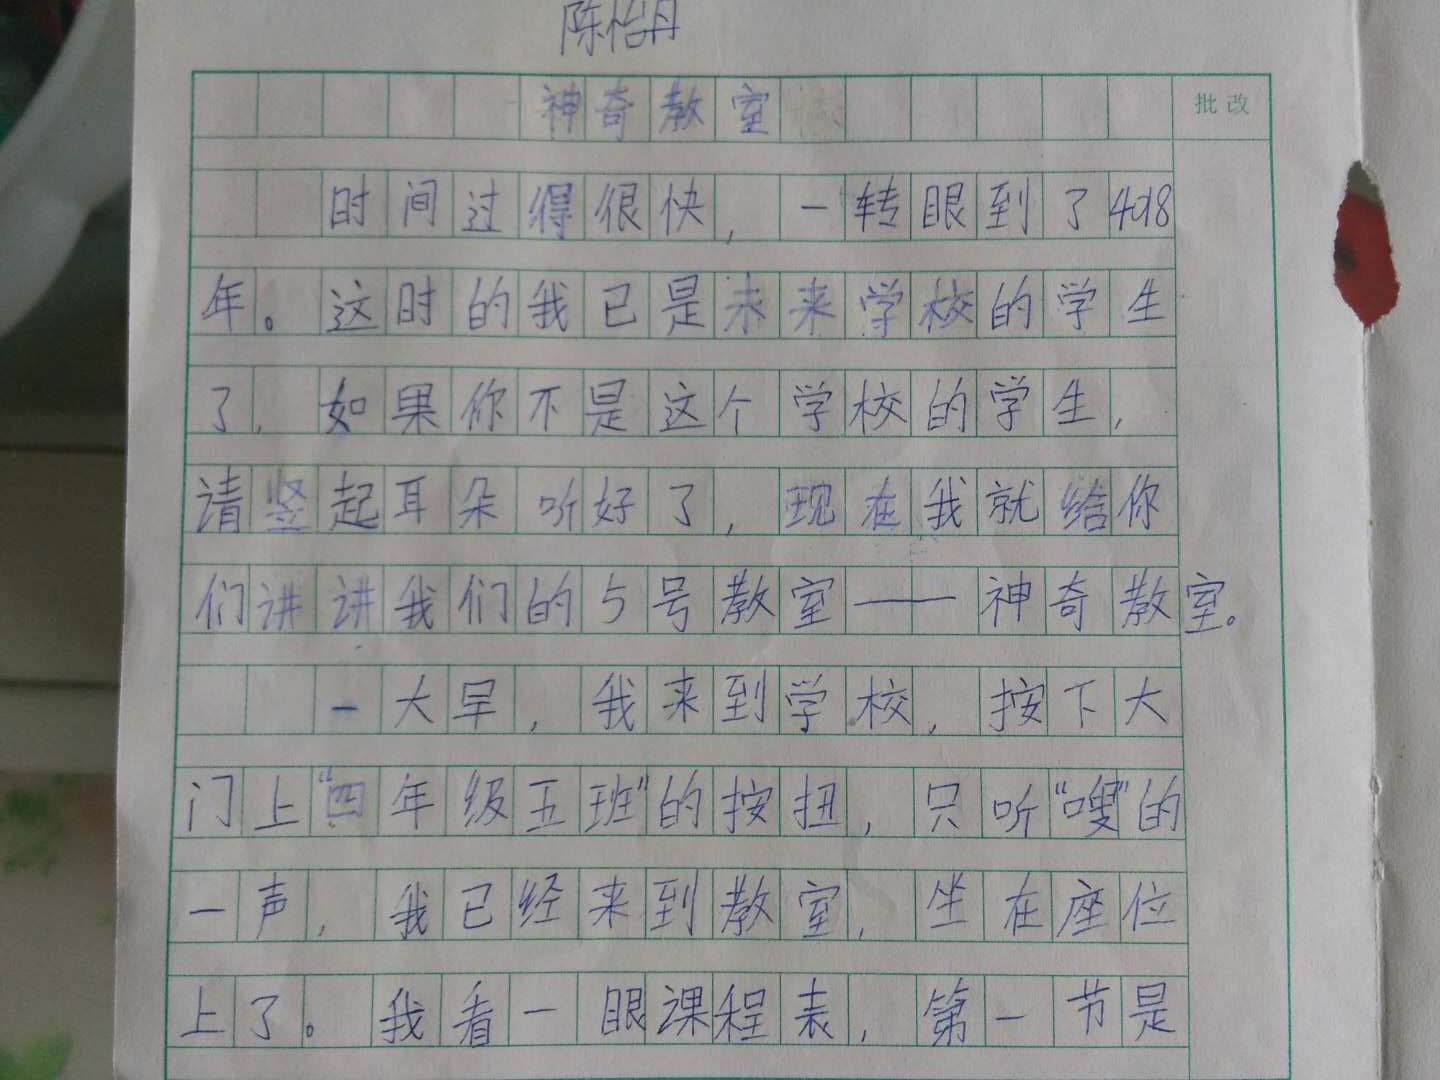 陈怡丹
神奇教室
批改
时间过得很快,一转眼到了4018
年。这时的我已是未来学校的学生
了,如果你不是这个学校的学生,
请竖起耳朵听好了,现在我就给你
们讲讲我们的5号教室——神奇教室。
一大早,我来到学校,按下大
门上“四年级五班”的按扭,只听“嗖”的
一声,我已经来到教室,坐在座位
上了。我看一眼课程表,第一节是